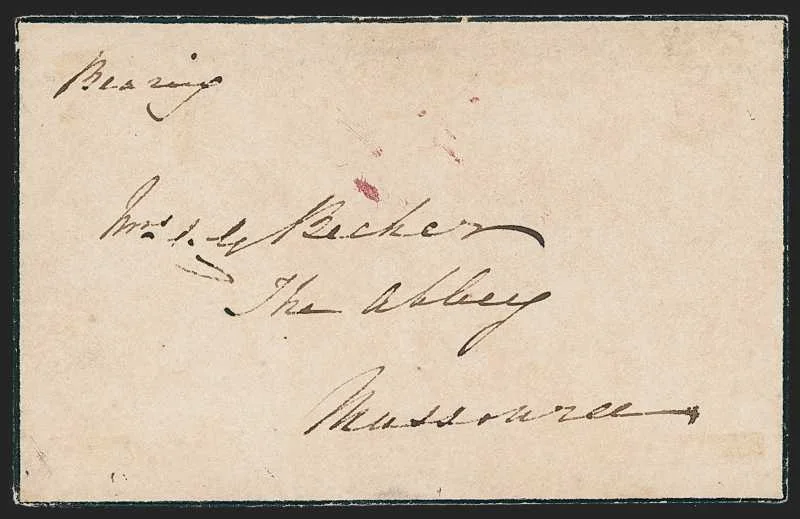 Bearing
Mrs Becher
The Abbey
Mussouree